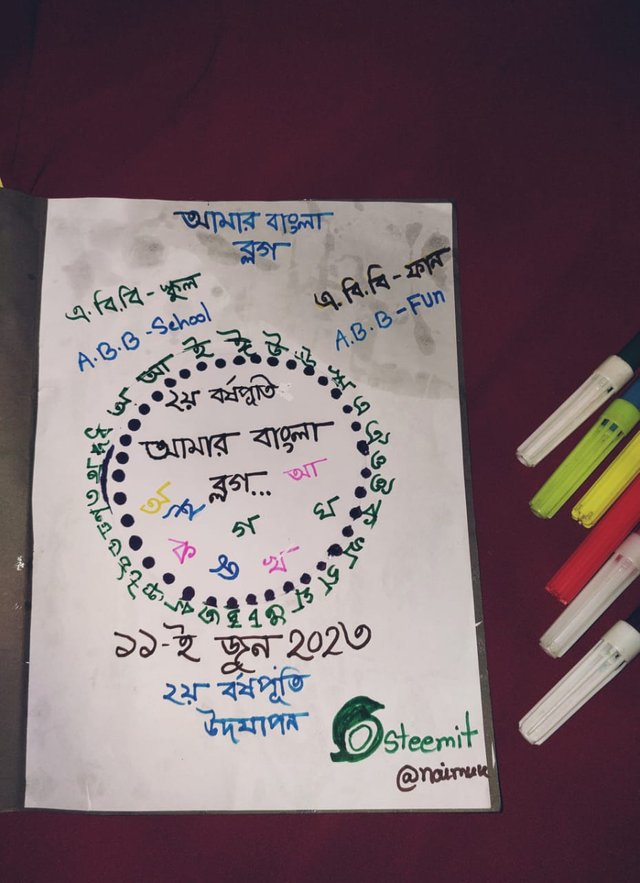 আমার বাংলা
ব্লগ
এ.বি.বি - স্কুল
A.B.B - School
এ.বি.বি - ফান
A.B.B - Fun
অ আ ই ঈ উ ঊ ঋ এ ঐ ও ঔ ক খ
২য় বর্ষপূতি
আমার বাংলা
ব্লগ...
অ শ আ
গ ঘ
ক ঙ খ
১১-ই জুন ২০২৩
২য় বর্ষপূতি
উদযাপন
steemit